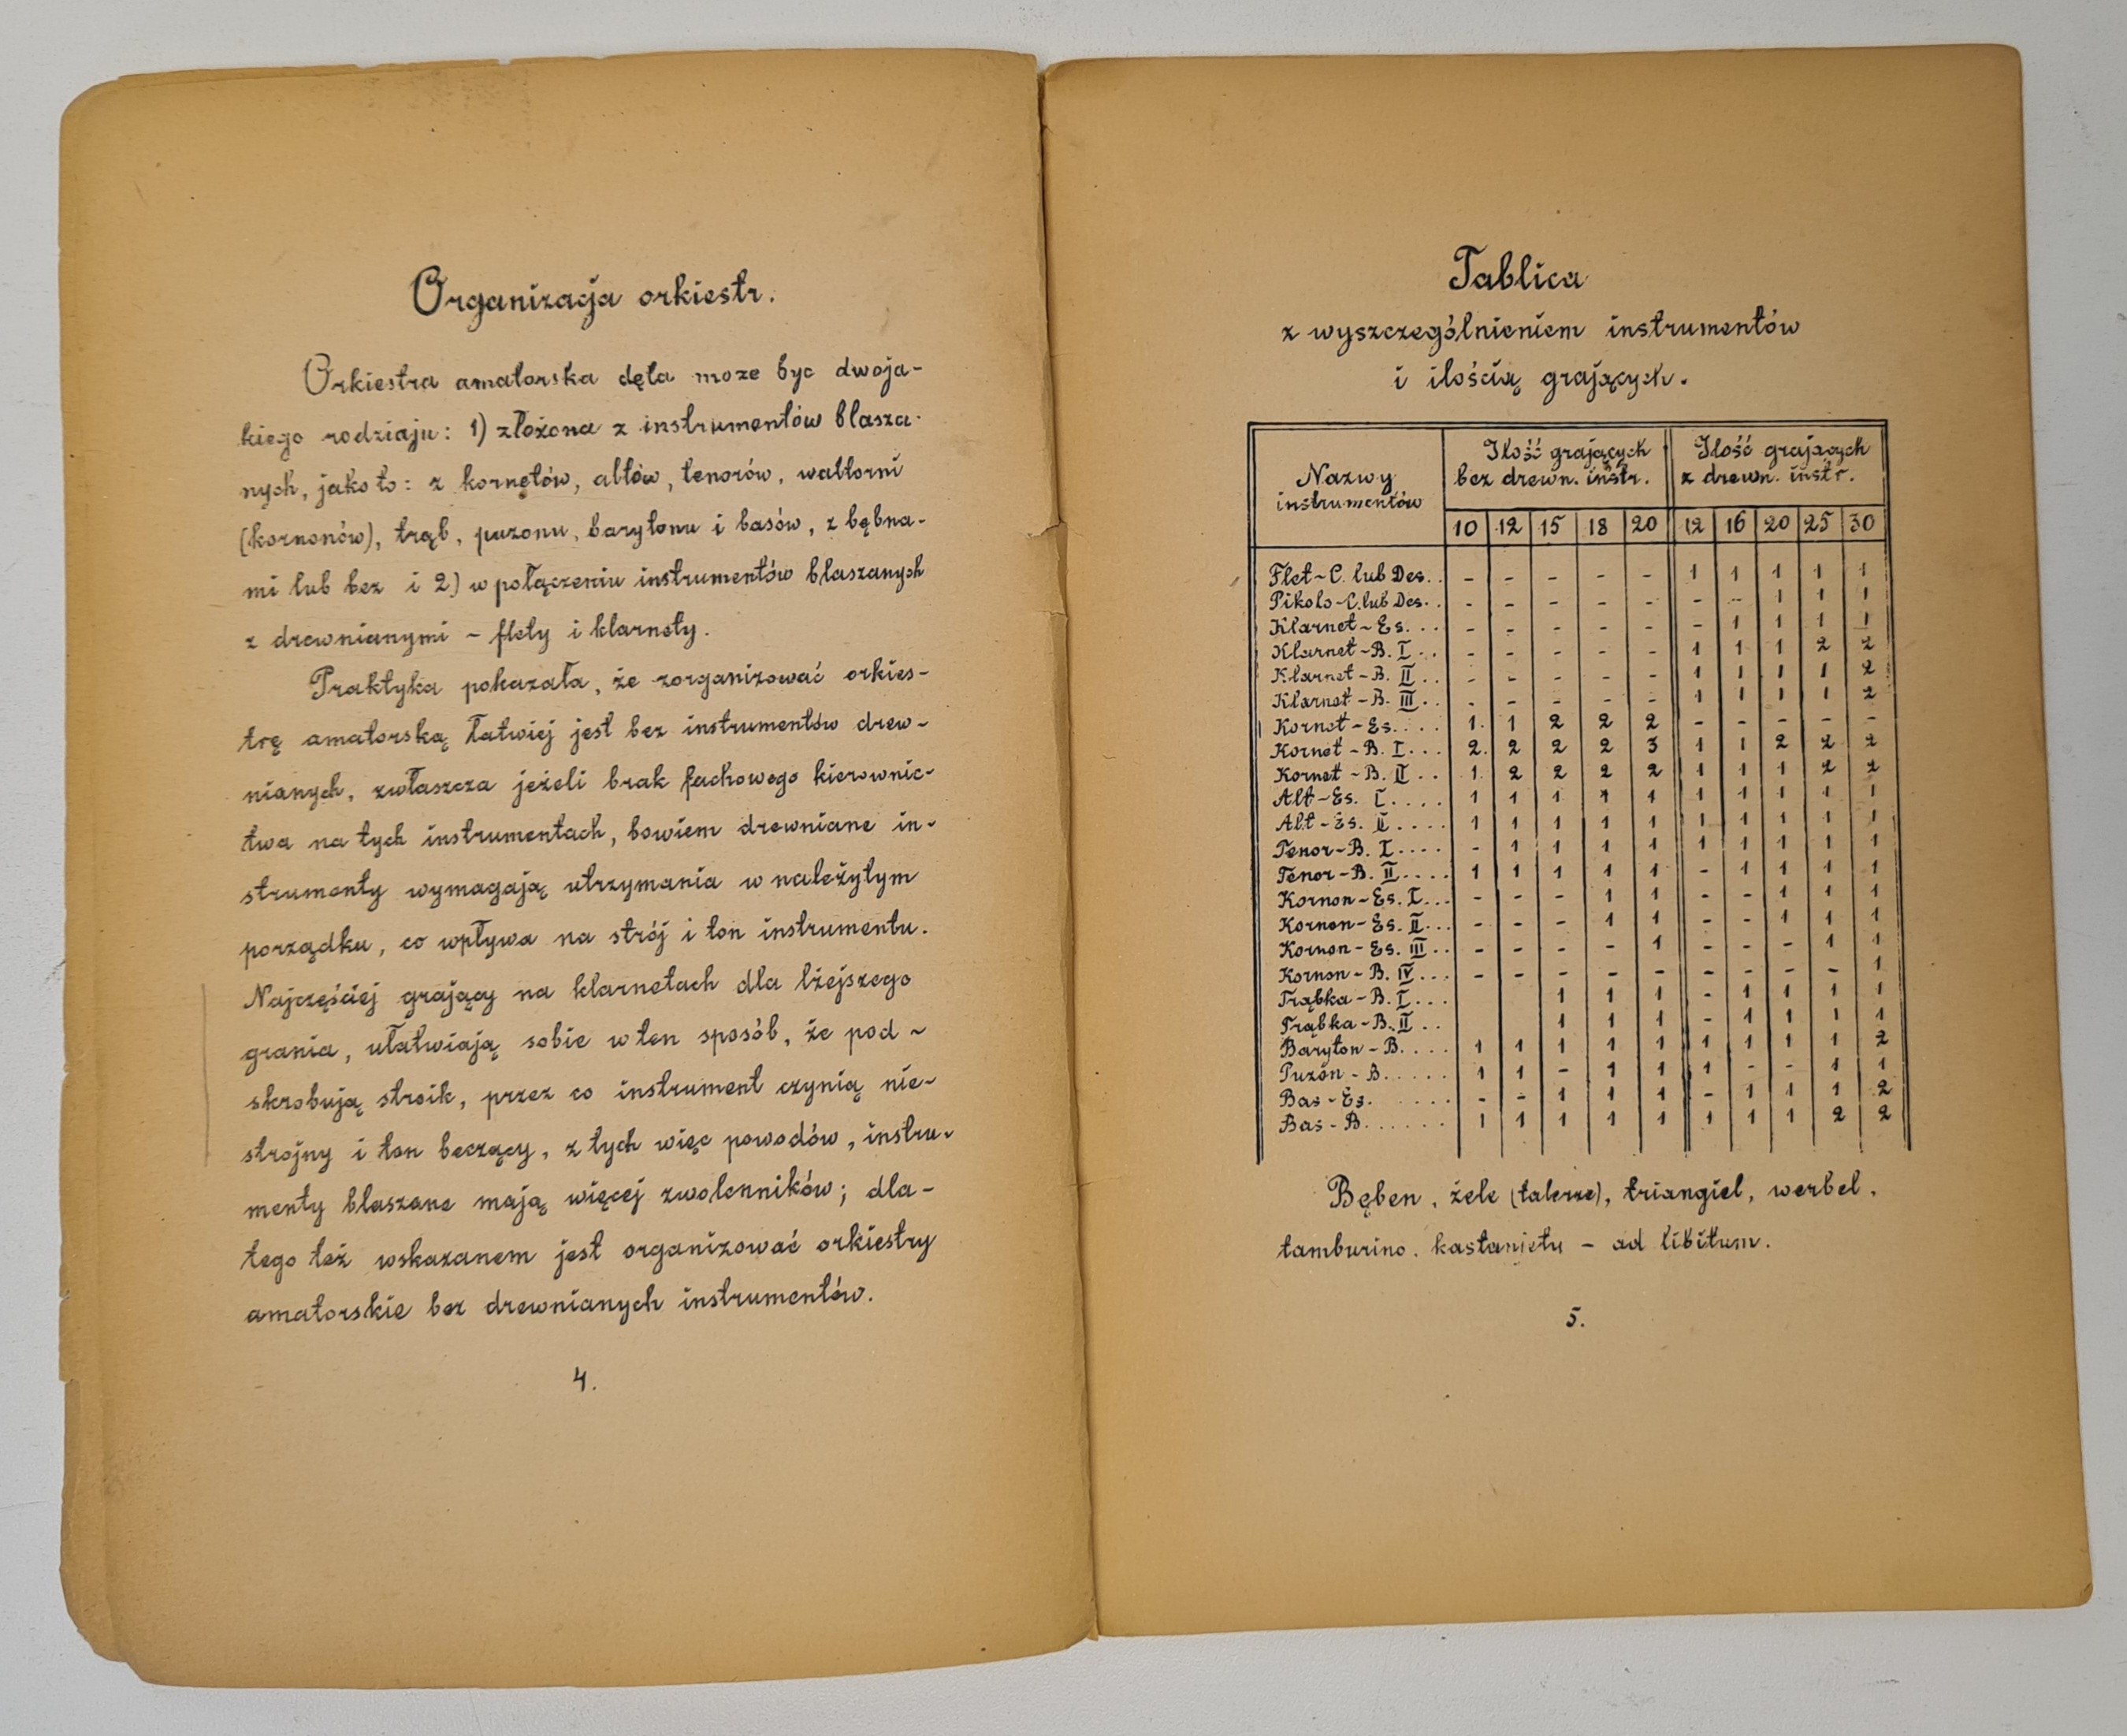 Organizacja orkiestr.
Orkiestra amatorska dęta moze byc dwoja-
kiego rodziaju: 1) złożona z instrumentów blasza-
nych, jako to: z kornetów, altów, tenorów, waltorni
(kornonów), trąb, puzonu, barytonu i basów, z bębna-
mi lub bez i 2) w połączeniu instrumentów blaszanych
z drewnianymi - flety i klarnety.
Praktyka pokazała, że zorganizować orkies-
trę amatorską łatwiej jest bez instrumentów drew-
nianych, zwłaszcza jeżeli brak fachowego kierownic-
twa na tych instrumentach, bowiem drewniane in-
strumenty wymagają utrzymania w należytym
porządku, co wpływa na strój i ton instrumentu.
Najczęściej grający na klarnetach dla lżejszego
grania, ułatwiają sobie w ten sposób, że pod-
skrobują stroik, przez co instrument czynią nie-
strojny i ton beczący, z tych więc powodów, instru-
menty blaszane mają więcej zwolenników; dla-
tego też wskazanem jest organizować orkiestry
amatorskie bez drewnianych instrumentów.
4.
Tablica
z wyszczególnieniem instrumentów
i ilością grających.
Nazwy instrumentów
Ilość grających bez drewn. instr.
Ilość grających z drewn. instr.
10 12 15 18 20 12 16 20 25 30
Flet - C. lub Des.. - - - - - 1 1 1 1 1
Pikolo - C. lub Des.. - - - - - - - 1 1 1
Klarnet - Es.... - - - - - - 1 1 1 1
Klarnet - B. I.. - - - - - 1 1 1 2 2
Klarnet - B. II.. - - - - - 1 1 1 1 2
Klarnet - B. III.. - - - - - 1 1 1 1 2
Kornet - Es.... 1. 1 2 2 2 - - - - -
Kornet - B. I... 2. 2 2 2 3 1 1 2 2 2
Kornet - B. II.. 1. 2 2 2 2 1 1 1 2 2
Alt - Es. I.... 1 1 1 1 1 1 1 1 1 1
Alt - Es. II.... 1 1 1 1 1 1 1 1 1 1
Tenor - B. I.... - 1 1 1 1 1 1 1 1 1
Tenor - B. II.... 1 1 1 1 1 - 1 1 1 1
Kornon - Es. I... - - - 1 1 - - 1 1 1
Kornon - Es. II... - - - 1 1 - - 1 1 1
Kornon - Es. III.. - - - - 1 - - - 1 1
Kornon - B. IV... - - - - - - - - - 1
Trąbka - B. I... 1 1 1 - 1 1 1 1
Trąbka - B. II.. 1 1 1 - 1 1 1 1
Baryton - B.... 1 1 1 1 1 1 1 1 1 2
Puzon - B..... 1 1 - 1 1 1 - - 1 1
Bas - Es. ...... - - 1 1 1 - 1 1 1 2
Bas - B...... 1 1 1 1 1 1 1 1 2 2
Bęben, żele (talerze), triangiel, werbel,
tamburino. kastanietu - ad libitum.
5.